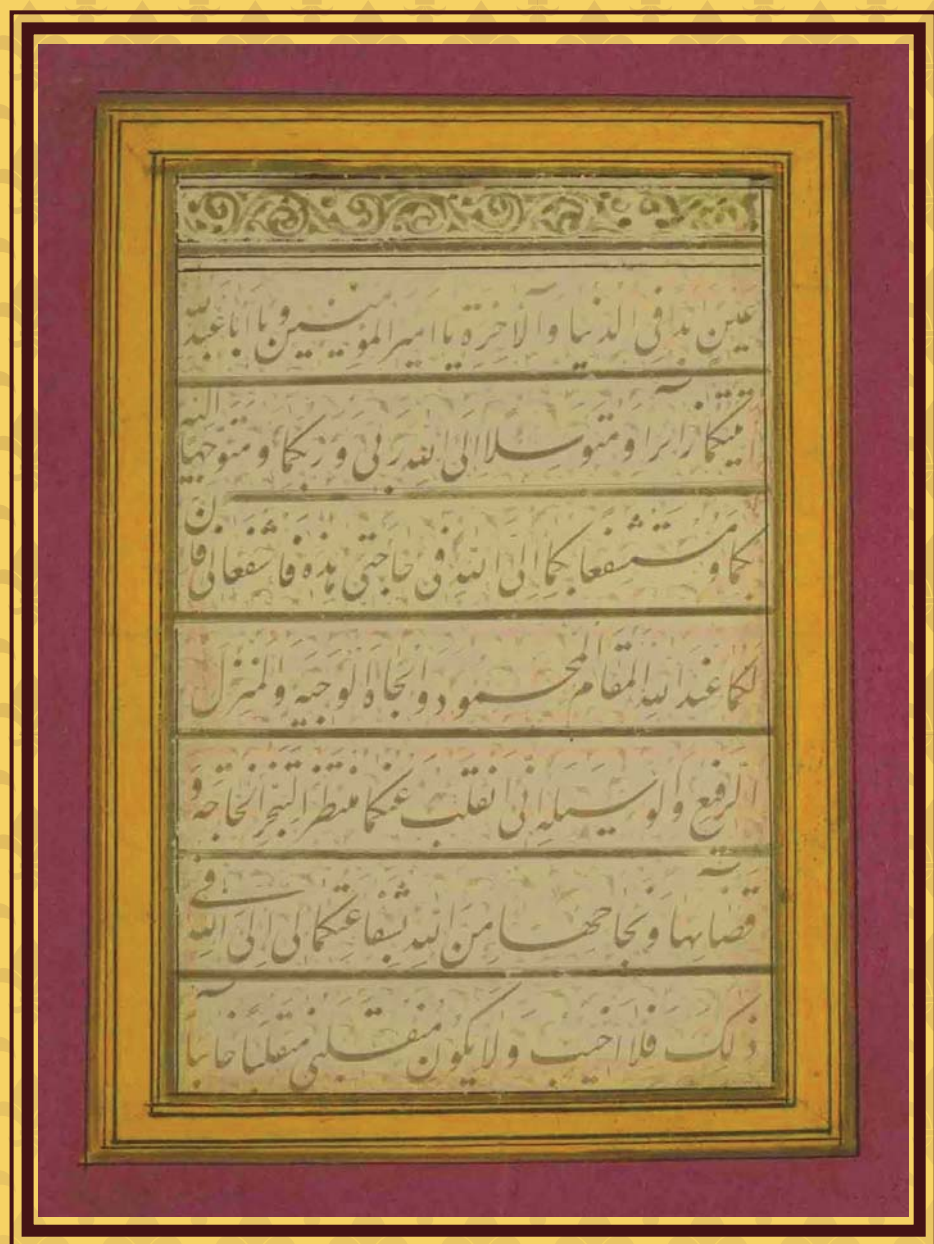 عَین ابدا فی الدنیا والآخرة یا امیرالمومنین ویا ابا عبدالله
اتیتکما زآئرا ومتوسلا الی الله ربی وربکما ومتوجها الیه
بکما ومستشفعا بکما الی الله فی حاجتی هذه فاشفعالی فان
لکما عند الله المقام المحمود والجاه الوجیه والمنزل
الرفیع والوسیله انی انقلب عنکما منتظرا لتنجز الحاجة و
قضآئها ونجاحها من الله بشفاعتکما لی الی الله فی
ذلک فلا اخیب ولا یکون منقلبی منقلبا خآئبا